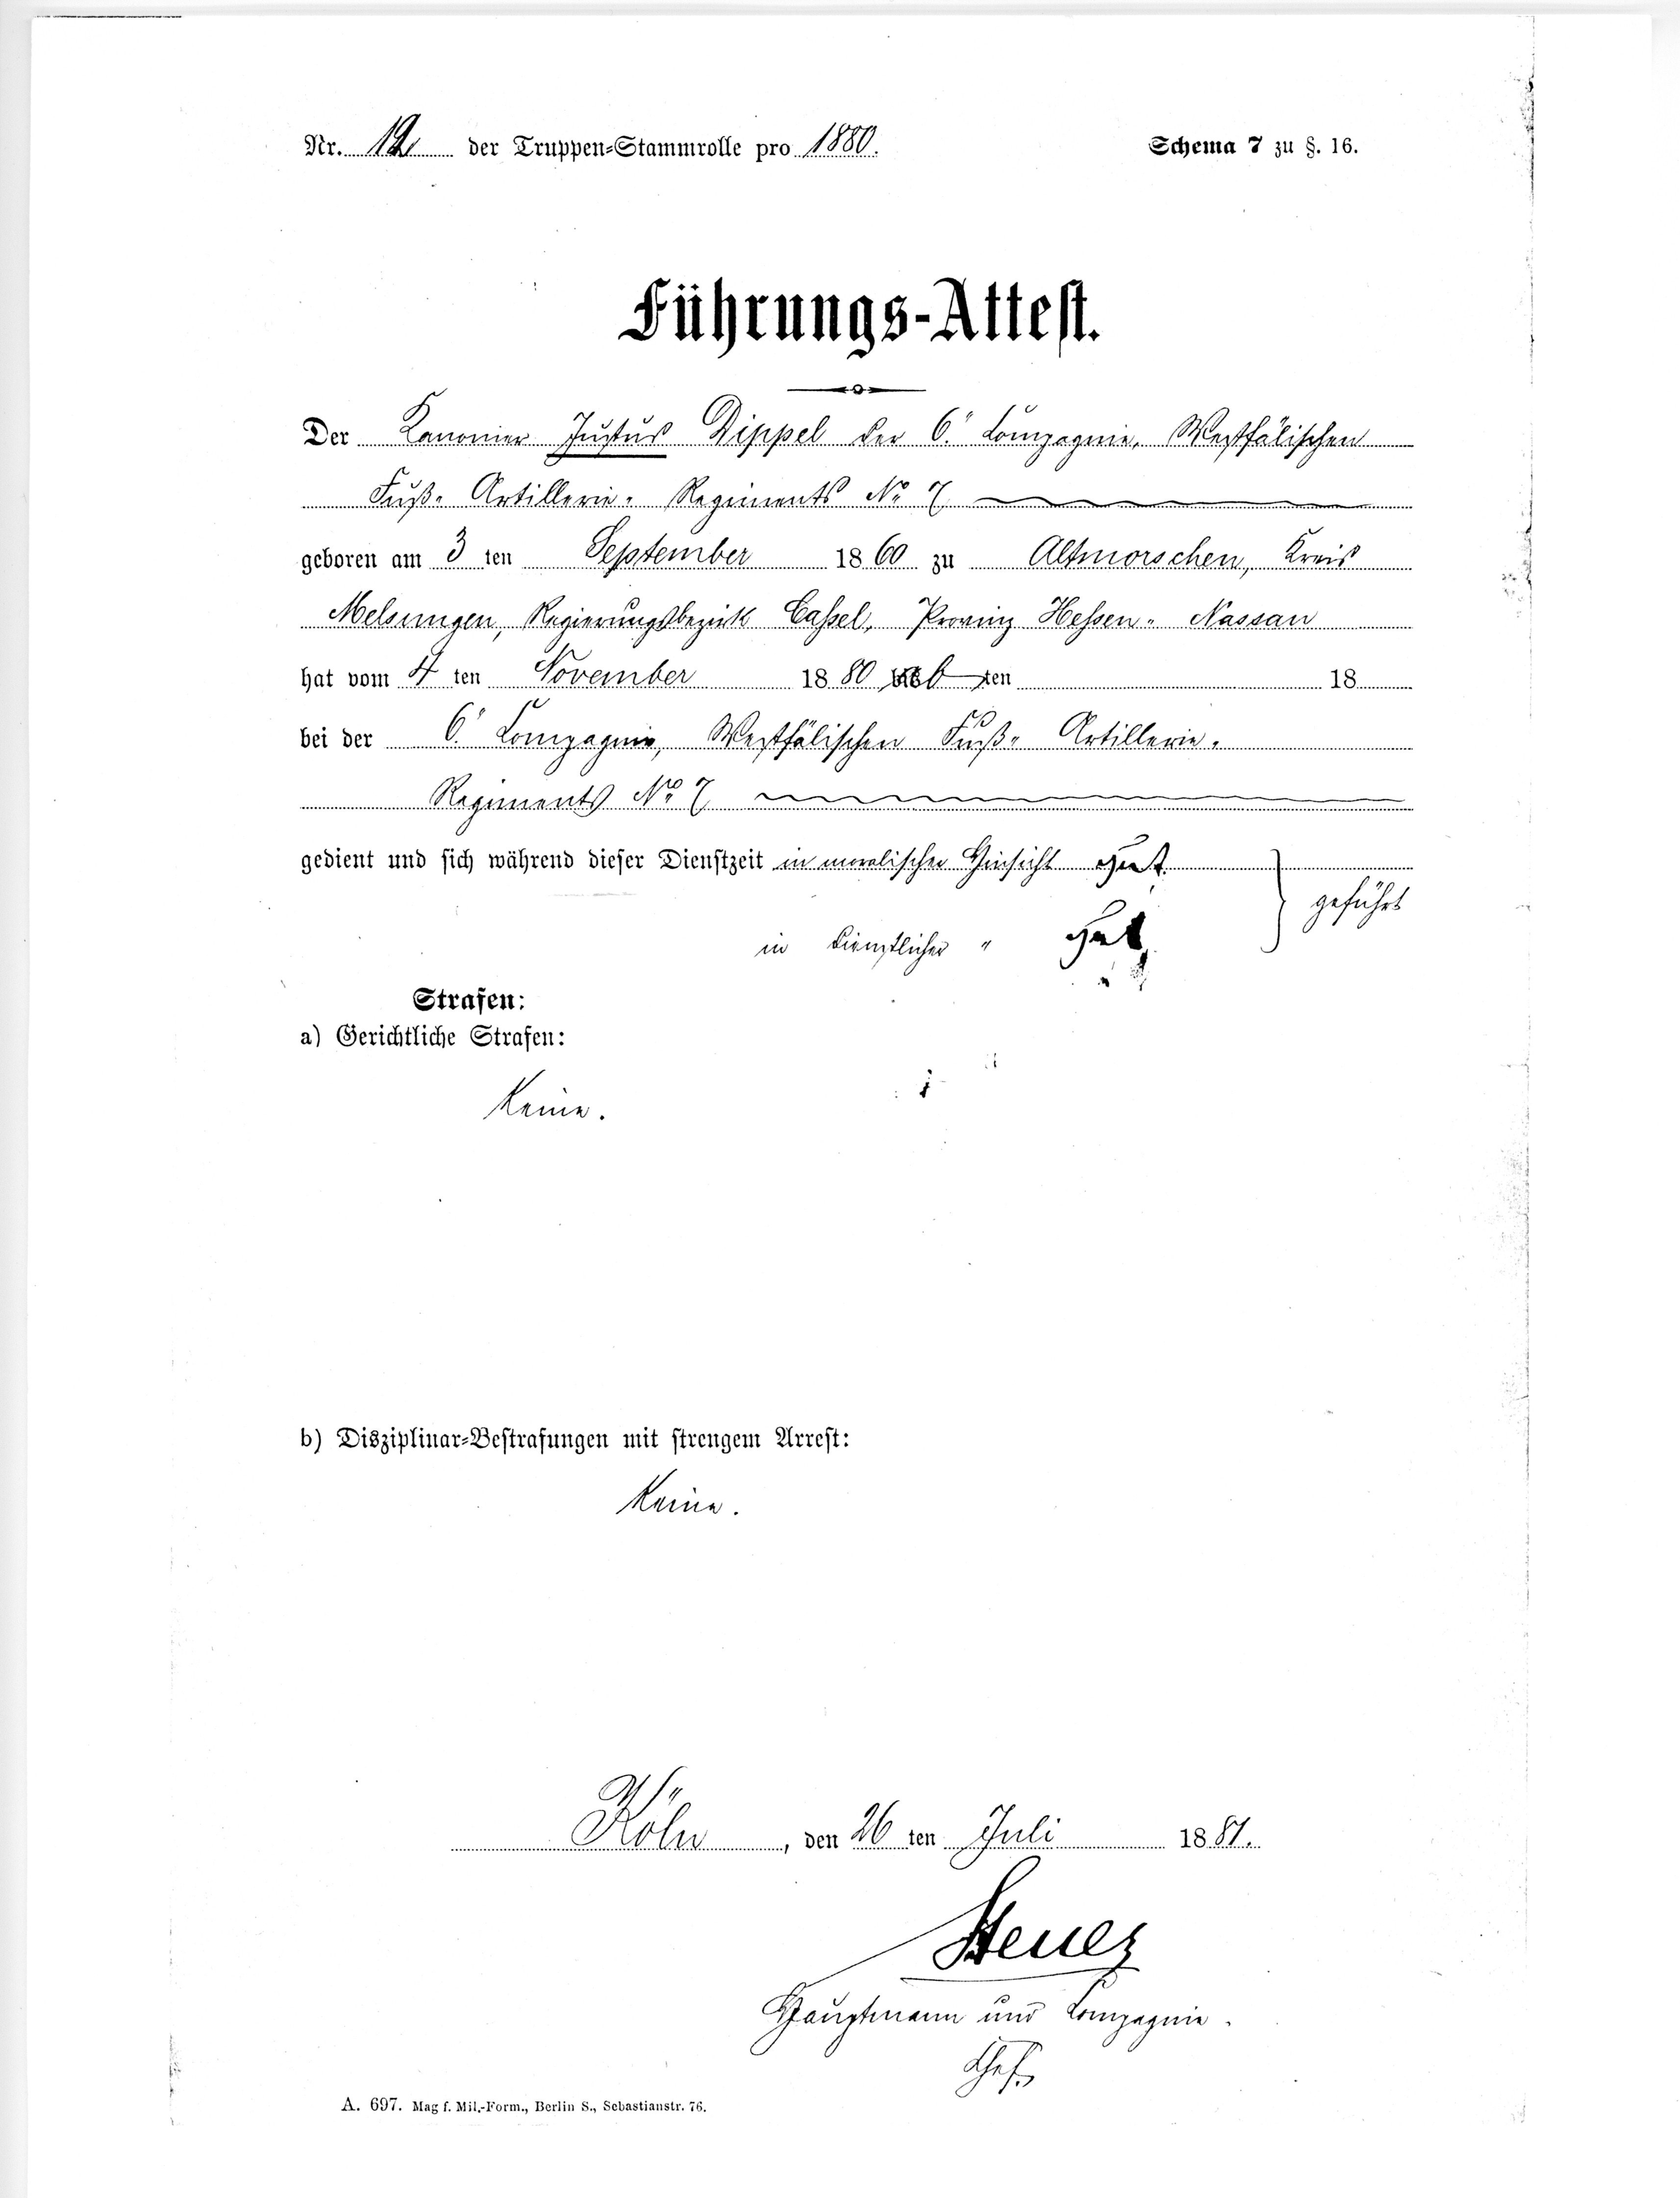 Nr. 12 der Truppen-Stammrolle pro 1880.
Schema 7 zu §. 16.
Führungs-Attest.
Der Kanonier Justus Dippel der 6. Compagnie, Westfälischen
Fuß-Artillerie-Regiments No 7
geboren am 3 ten September 1860 zu Altmorschen, Kreis
Melsungen, Regierungsbezirk Cassel, Provinz Hessen-Nassau
hat vom 4 ten November 1880 ab ten 18
bei der 6. Compagnie, Westfälischen Fuß-Artillerie-
Regiments No 7
gedient und sich während dieser Dienstzeit in moralischer Hinsicht gut
in dienstlicher " gut
geführt
Strafen:
a) Gerichtliche Strafen:
Keine.
b) Disziplinar-Bestrafungen mit strengem Arrest:
Keine.
Köln, den 26 ten Juli 1881.
Hauptmann und Compagnie-
Chef
A. 697. Mag f. Mil.-Form., Berlin S., Sebastianstr. 76.